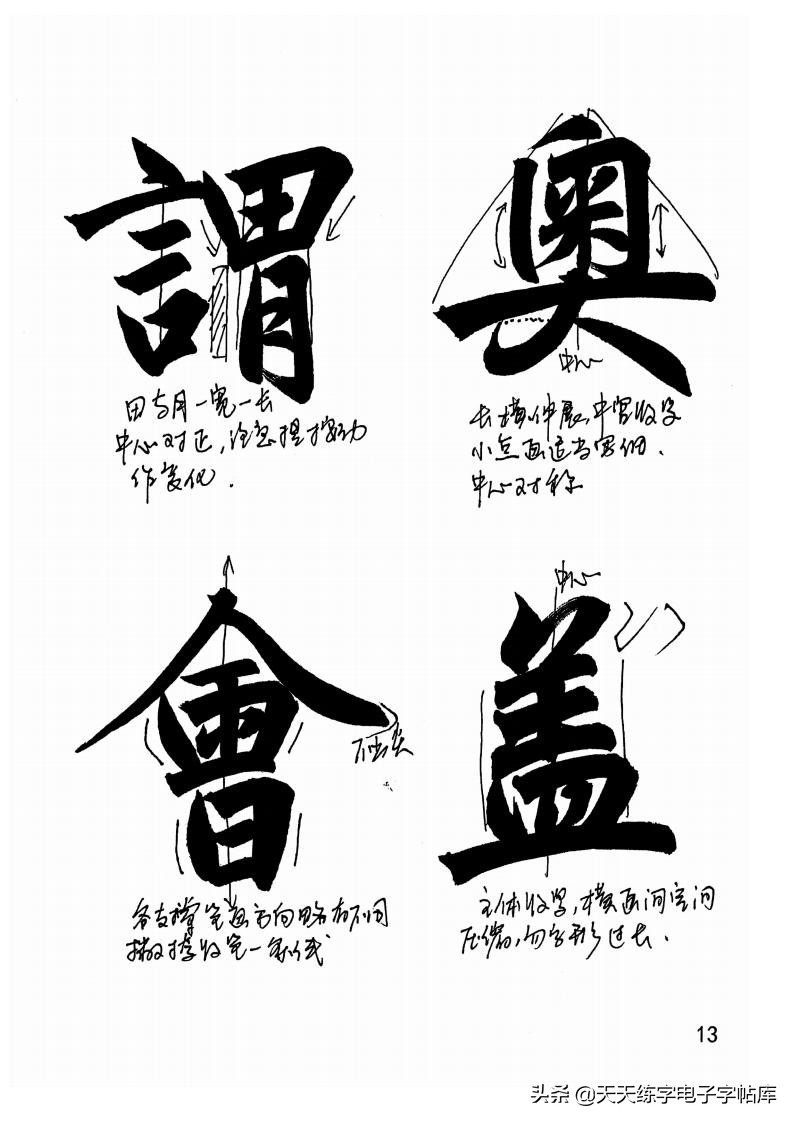 謂
奥
中心
田与月一宽一长
中心对正，注意提按动
作变化．
长横伸展，中宫收紧
小点画适当写细．
中心对称
會
不出尖
各支撑笔画方向略有不同
撇捺收笔一
中心
盖
主体收紧，横画间空间
压缩，勿字形过长．
13
头条 @天天练字电子字帖库